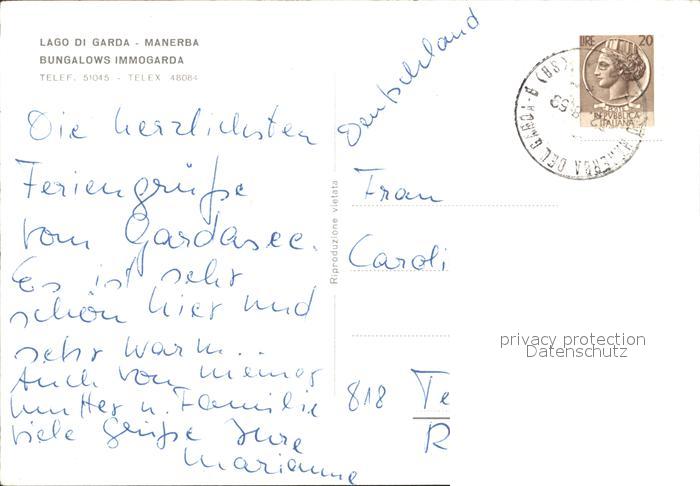 LAGO DI GARDA - MANERBA
BUNGALOWS IMMOGARDA
TELEF. 51045 - TELEX 48084
Die herzlichsten
Feriengrüße
vom Gardasee.
Es ist sehr
schön hier und
sehr warm...
Auch von meiner
Mutter u. Familie
viele Grüße Ihre
Marianne
Riproduzione vietata
Deutschland
LIRE 20
REPUBBLICA
ITALIANA
MANERBA DEL GARDA (BS)
Frau
Caroli
818 Te
R
privacy protection
Datenschutz